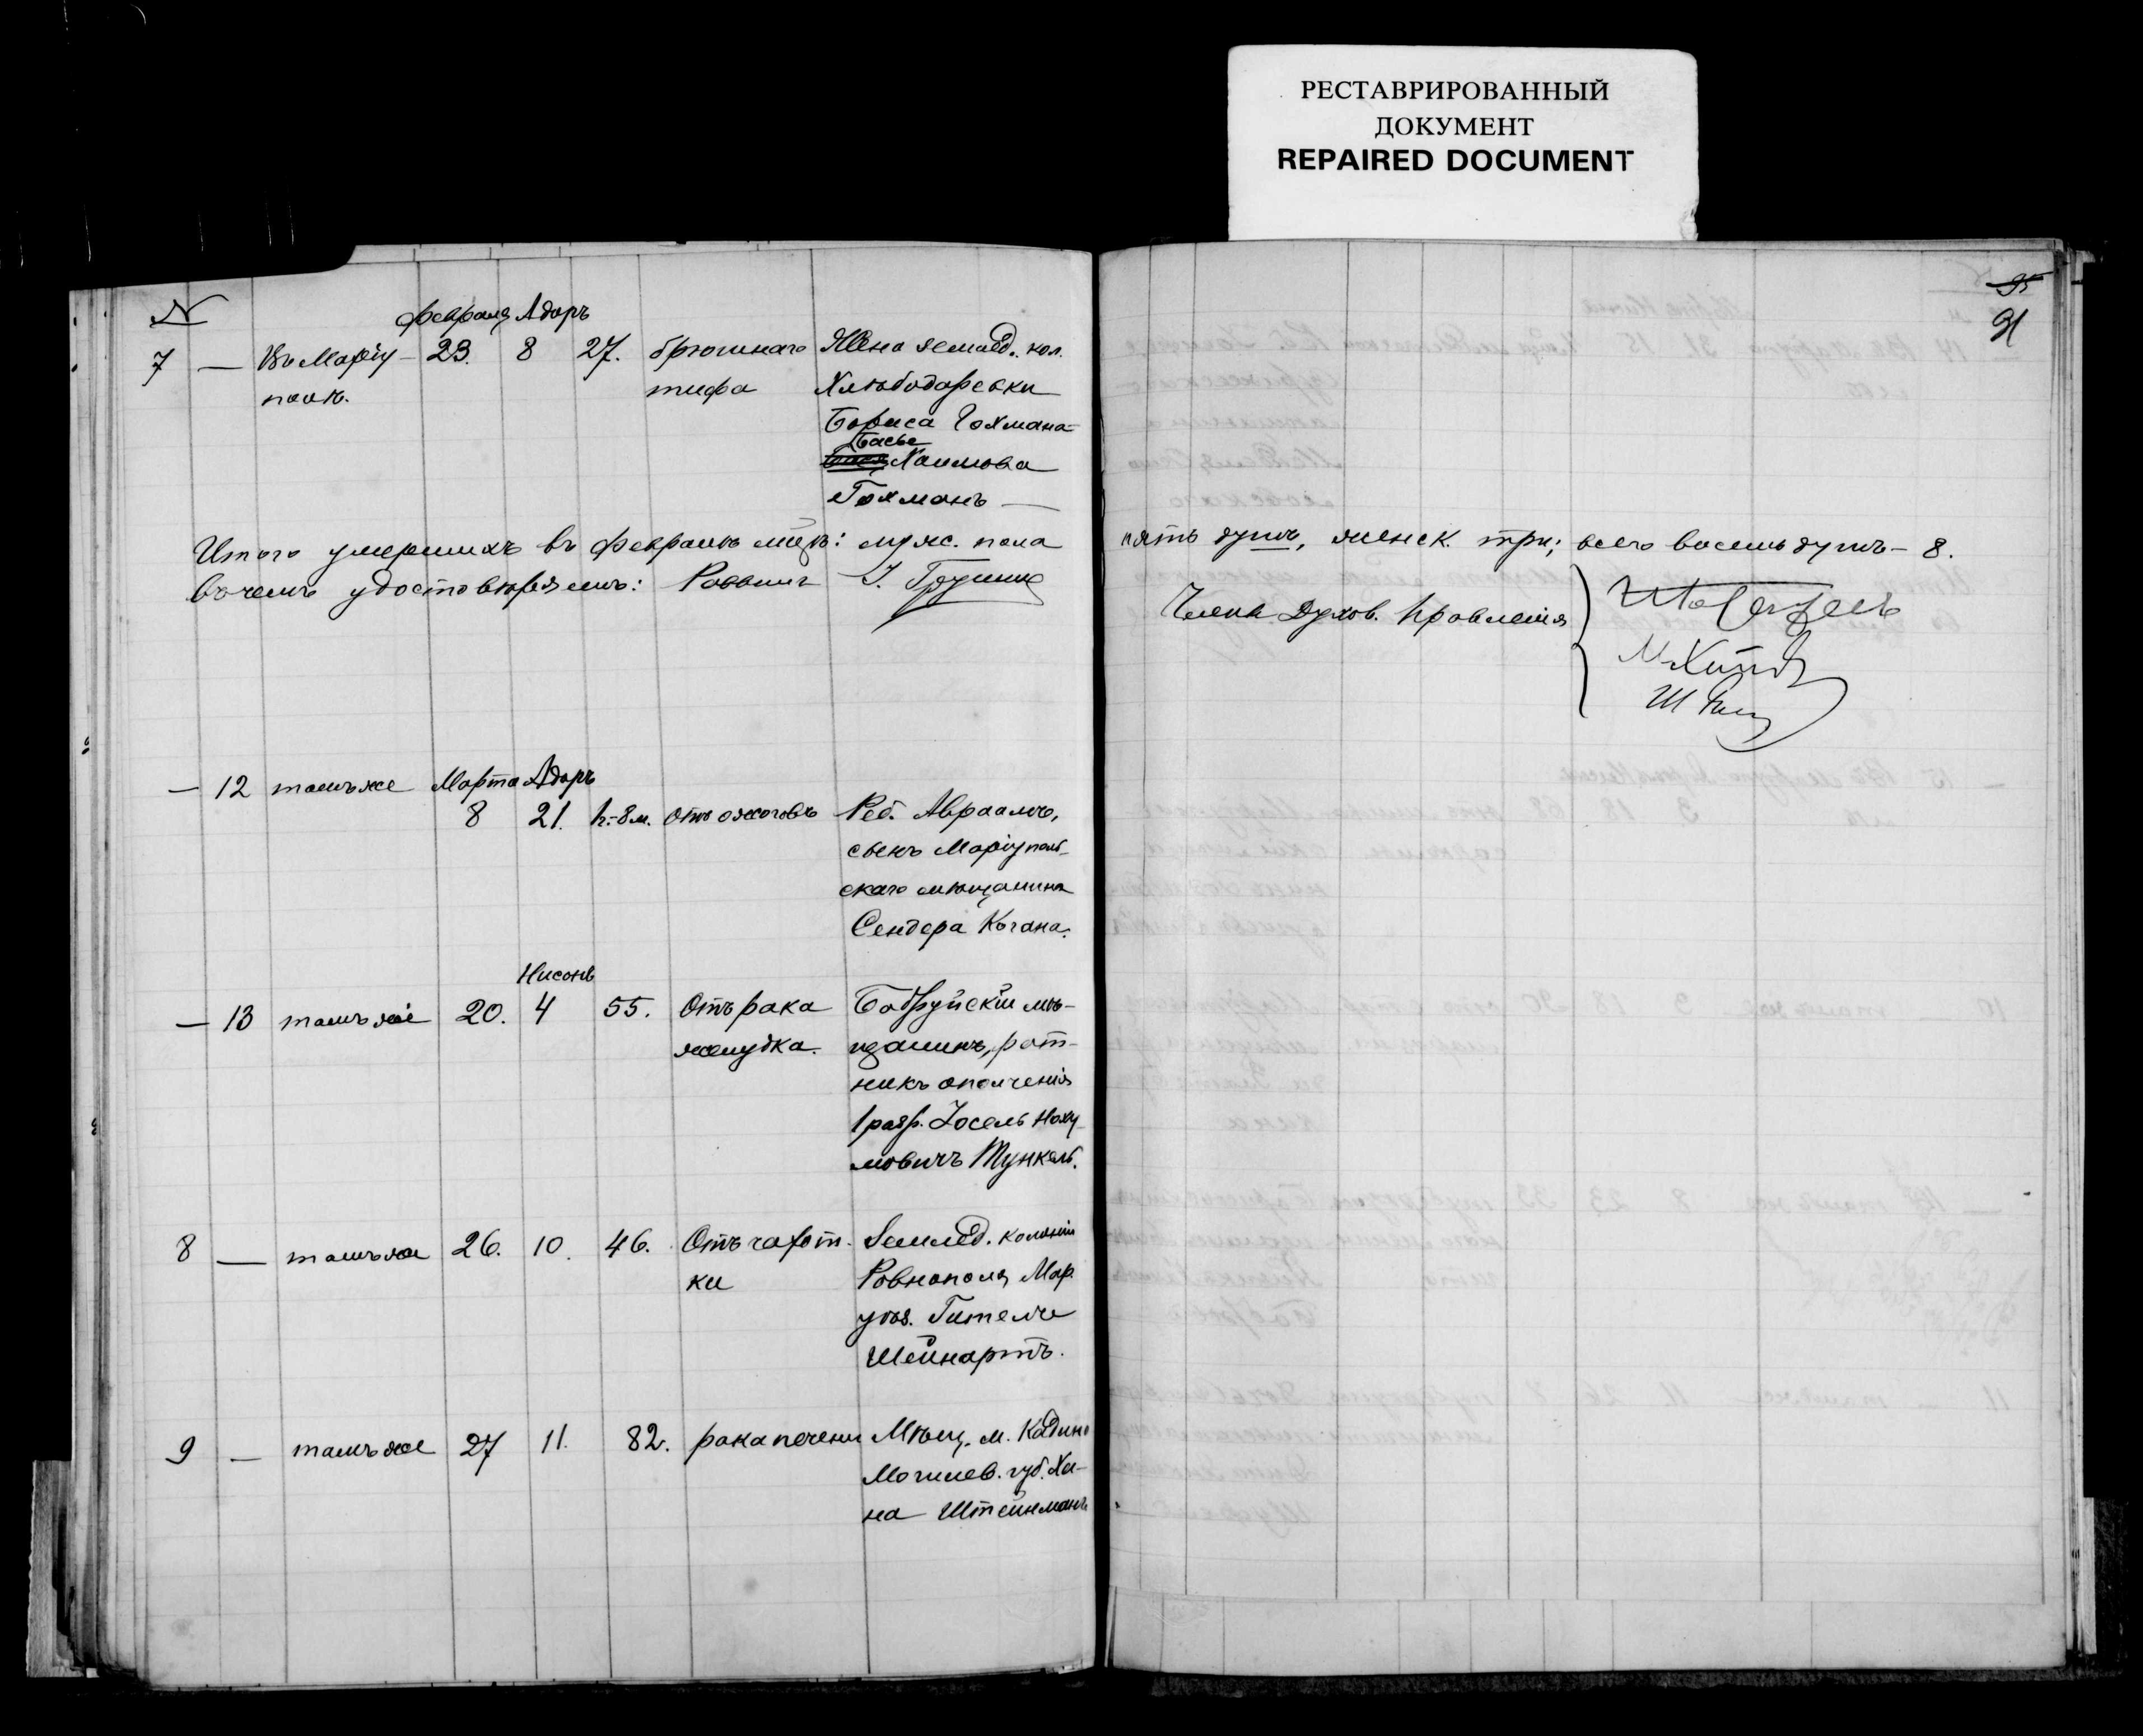 РЕСТАВРИРОВАННЫЙ
ДОКУМЕНТ
REPAIRED DOCUMENT
95
91
№
Февраля Адоръ
7 — Въ Маріу- 23. 8 27. брюшнаго Жена землед. кол.
полѣ. тифа Хлѣбодаровки
Бориса Гохмана
Басье
Хаимова
Гохманъ —
Итого умершихъ въ Февралѣ мѣс.: муж. пола пять душъ, женск. три; всего восемь душъ — 8.
въ чемъ удостовѣряемъ: Раввинъ
Члены Духов. Правленія
Марта Адоръ
— 12 тамъ же 8 21. 2.-8 м. отъ ожоговъ Реб. Авраамъ,
сынъ Маріуполь-
скаго мѣщанина
Сендера Когана.
Нисонъ
— 13 тамъ же 20. 4 55. Отъ рака Бобруйскій мѣ-
желудка. щанинъ, рат-
никъ ополченія
1 разр. Іосель Наху
мовичъ Тункель.
8 — тамъ же 26. 10. 46. Отъ чахот- Землед. колоніи
ки Ровнополя Мар.
уѣз. Гителе
Шейнартъ.
9 — тамъ же 27 11. 82. рака печени Мѣщ. м. Кадино
Могилев. губ. Ха-
на Штейнманъ